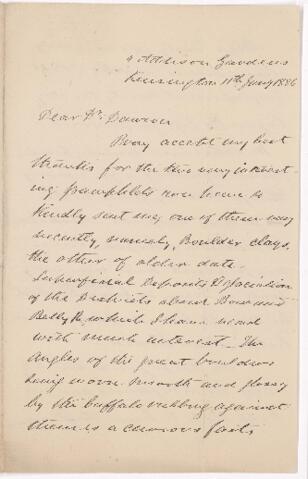 4 Addison Gardens
Kensington 11th Jany 1886
Dear Dr. Dawson
Pray accept my best
thanks for the two very interest-
ing pamphlets you have so
kindly sent me, one of them very
recently, namely, Boulder clays,
the other of older date.
Superficial Deposits & Glaciation
of the Districts about Bow and
Belly R. which I have read
with much interest. The
angles of the great boulders
being worn smooth and glossy
by the buffalo rubbing against
them is a curious fact,